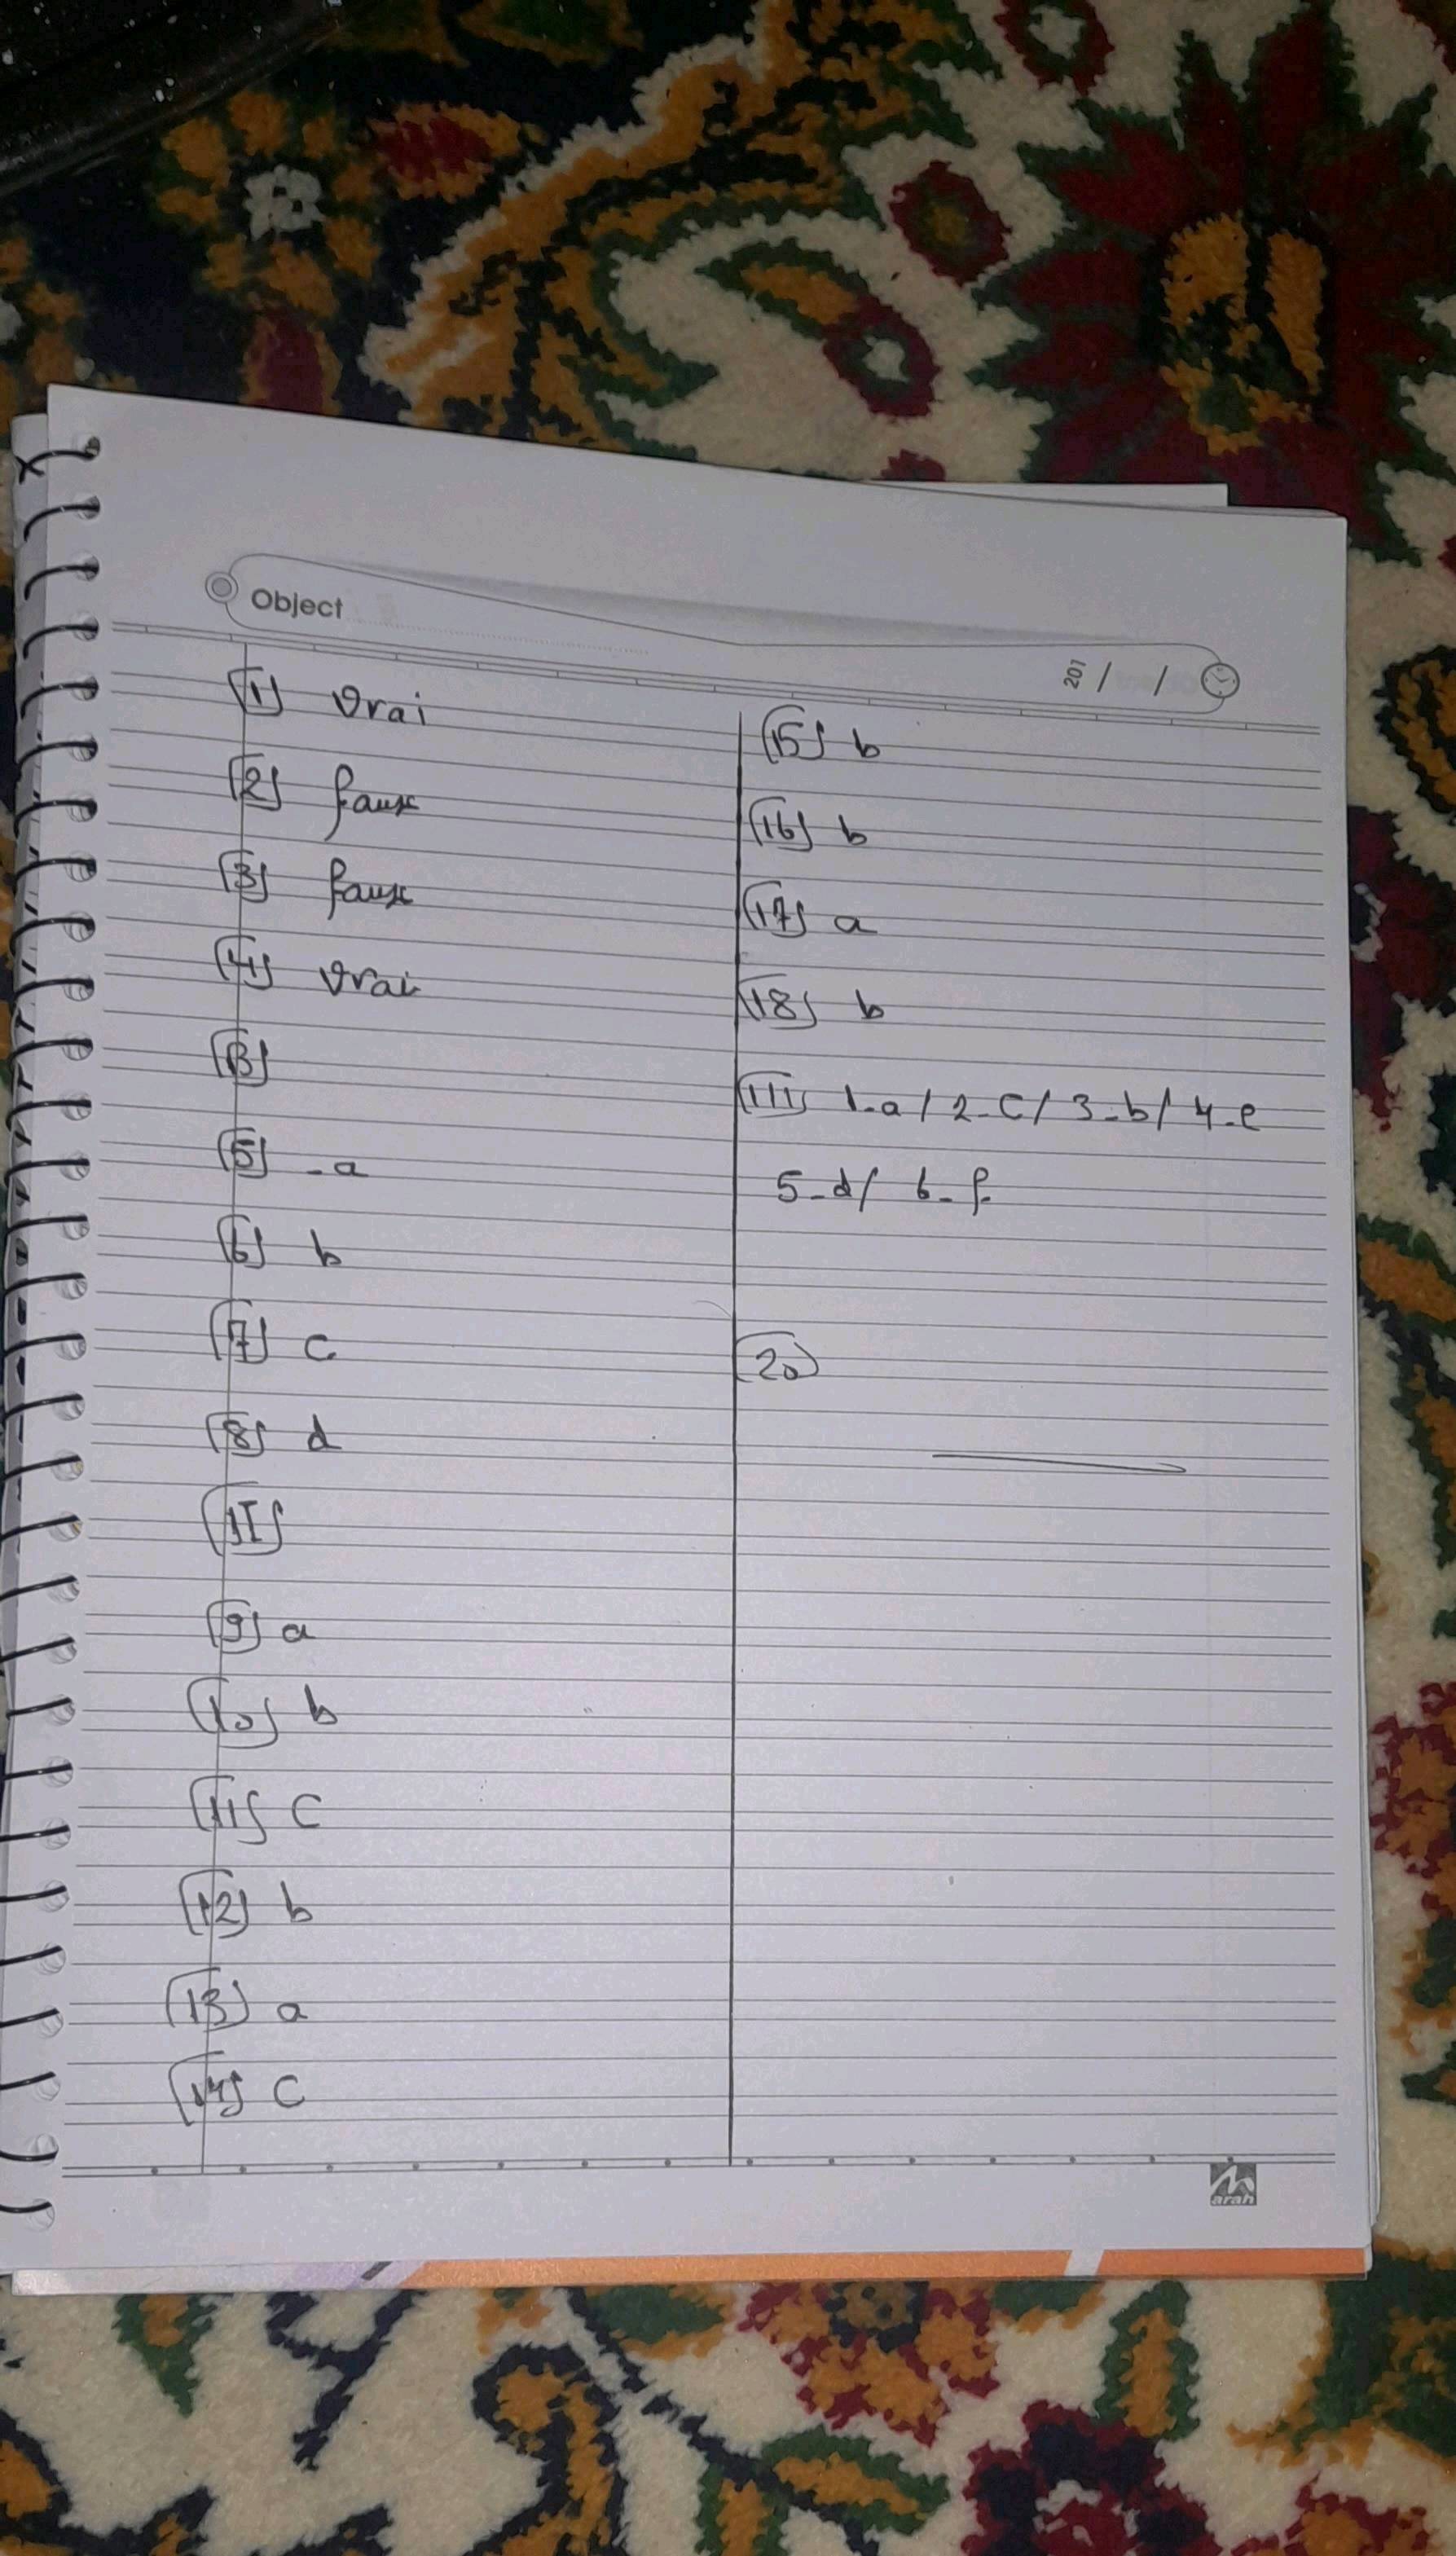 Object
201 / /
1) vrai
2) faux
3) faux
4) vrai
B)
5) - a
6) b
7) c
8) d
II)
9) a
10) b
11) c
12) b
13) a
14) c
15) b
16) b
17) a
18) b
III) 1-a / 2-c / 3-b / 4-e
5-d / 6-f
20
arah